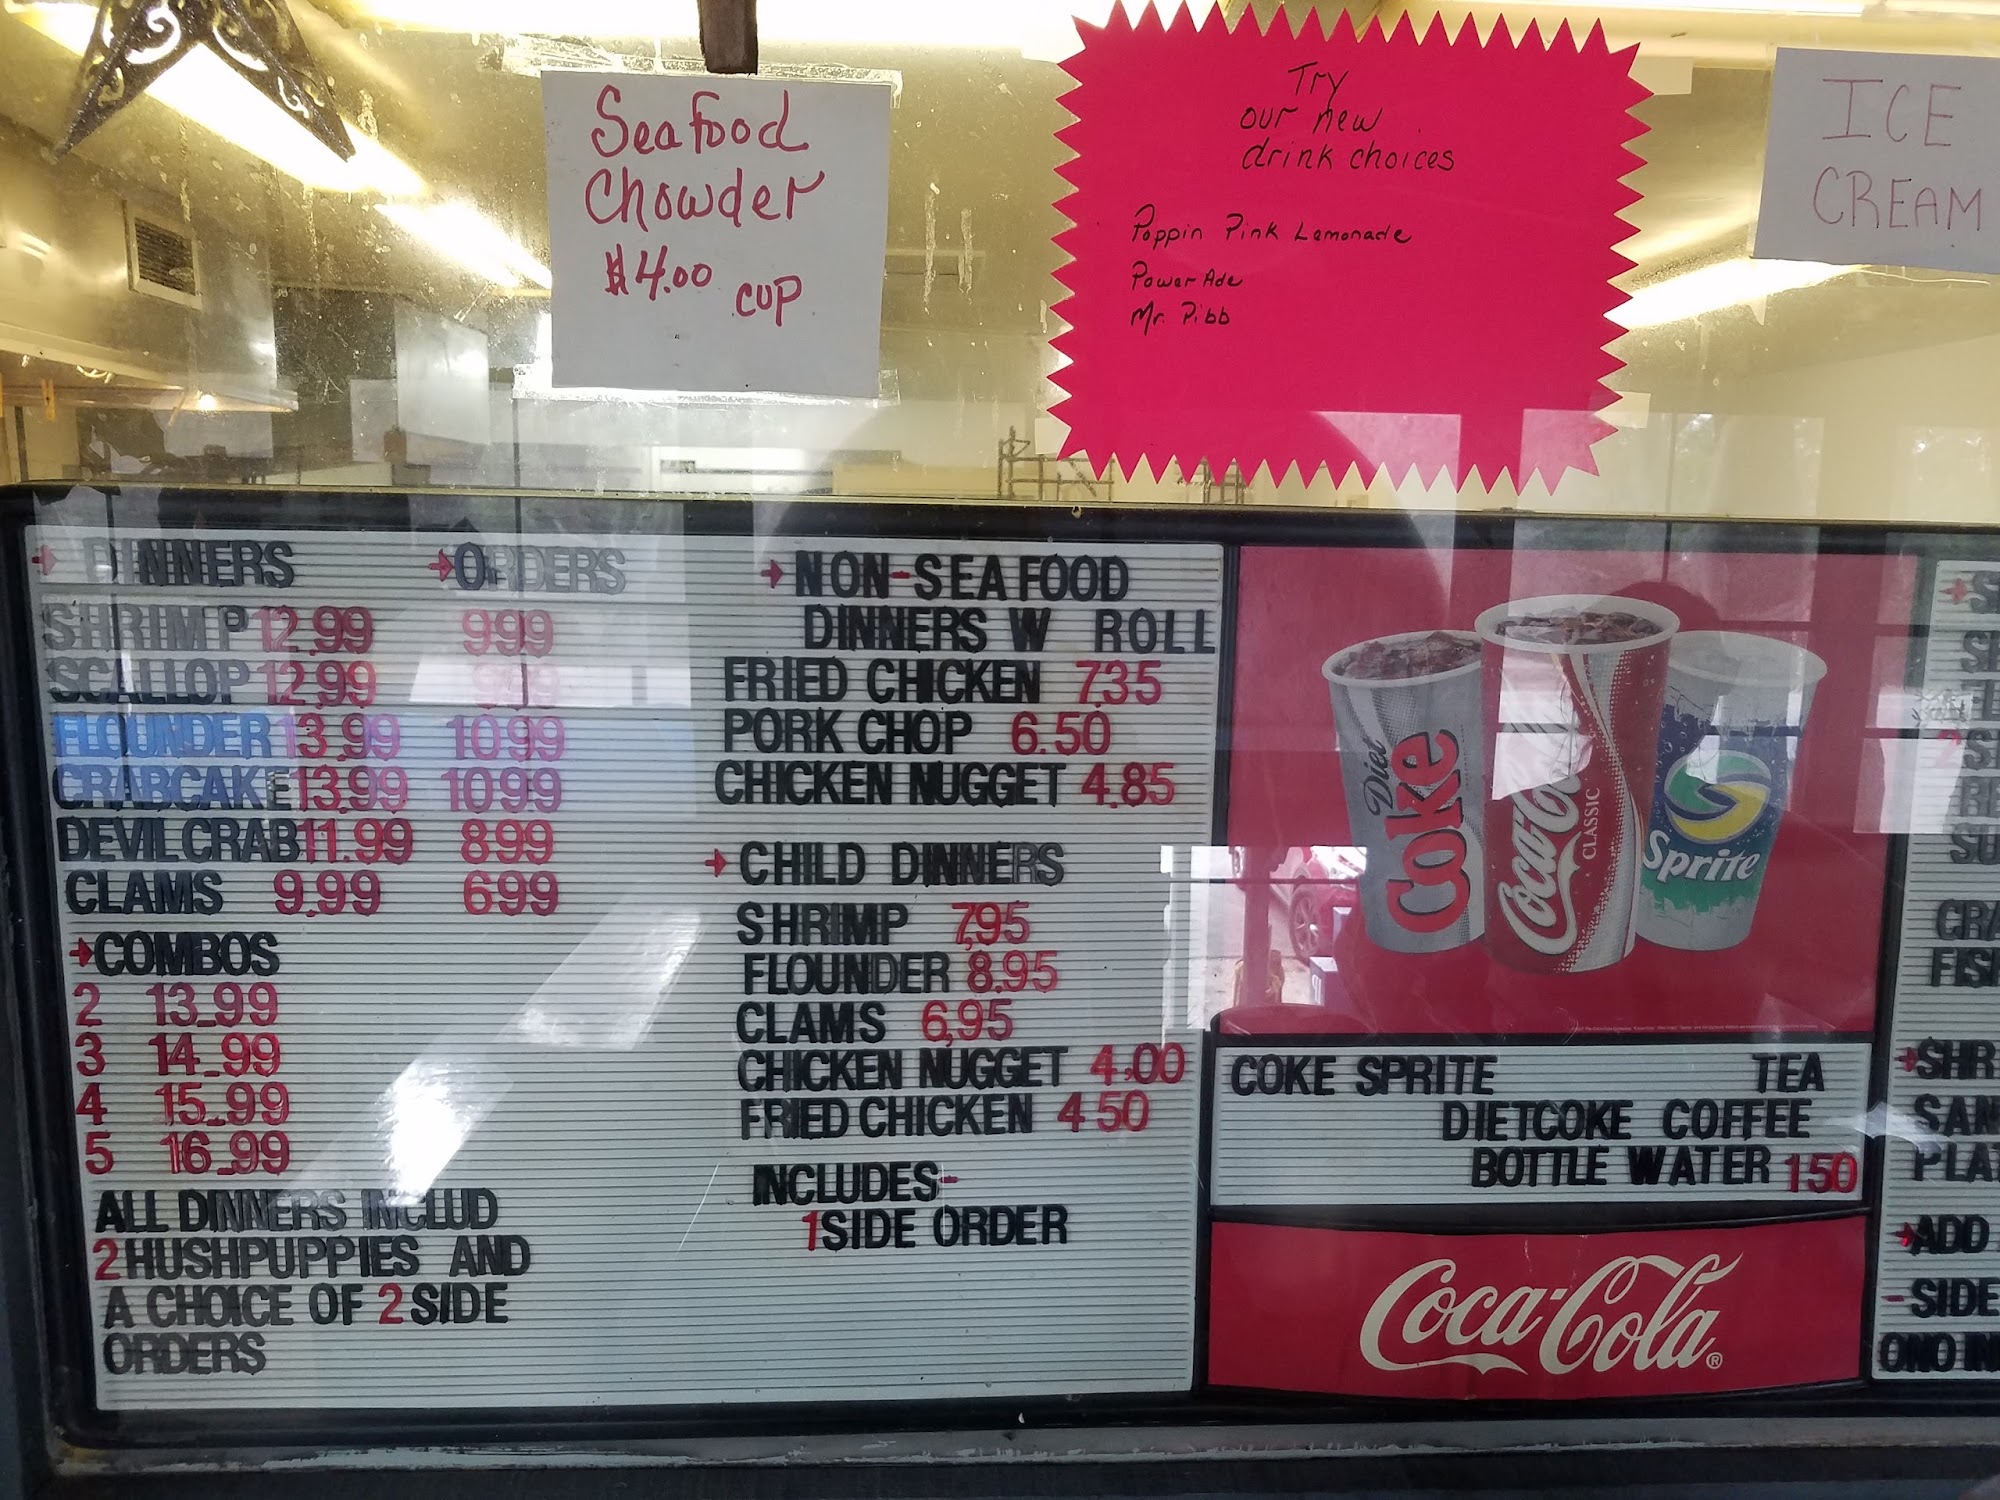 Seafood
Chowder
$4.00 cup
Try
our new
drink choices
Poppin Pink Lemonade
PowerAde
Mr. Pibb
ICE
CREAM
DINNERS ORDERS
SHRIMP 12.99 999
SCALLOP 12.99
FLOUNDER 13.99 1099
CRABCAKE 13.99 1099
DEVILCRAB 11.99 899
CLAMS 9.99 699
COMBOS
2 13.99
3 14.99
4 15.99
5 16.99
ALL DINNERS INCLUD
2 HUSHPUPPIES AND
A CHOICE OF 2 SIDE
ORDERS
NON-SEAFOOD
DINNERS W ROLL
FRIED CHICKEN 7.35
PORK CHOP 6.50
CHICKEN NUGGET 4.85
CHILD DINNERS
SHRIMP 7.95
FLOUNDER 8.95
CLAMS 6.95
CHICKEN NUGGET 4.00
FRIED CHICKEN 4 50
INCLUDES-
1 SIDE ORDER
Diet Coke
Coca-Cola CLASSIC
Sprite
COKE SPRITE TEA
DIETCOKE COFFEE
BOTTLE WATER 150
Coca-Cola®
ADD
-SIDE